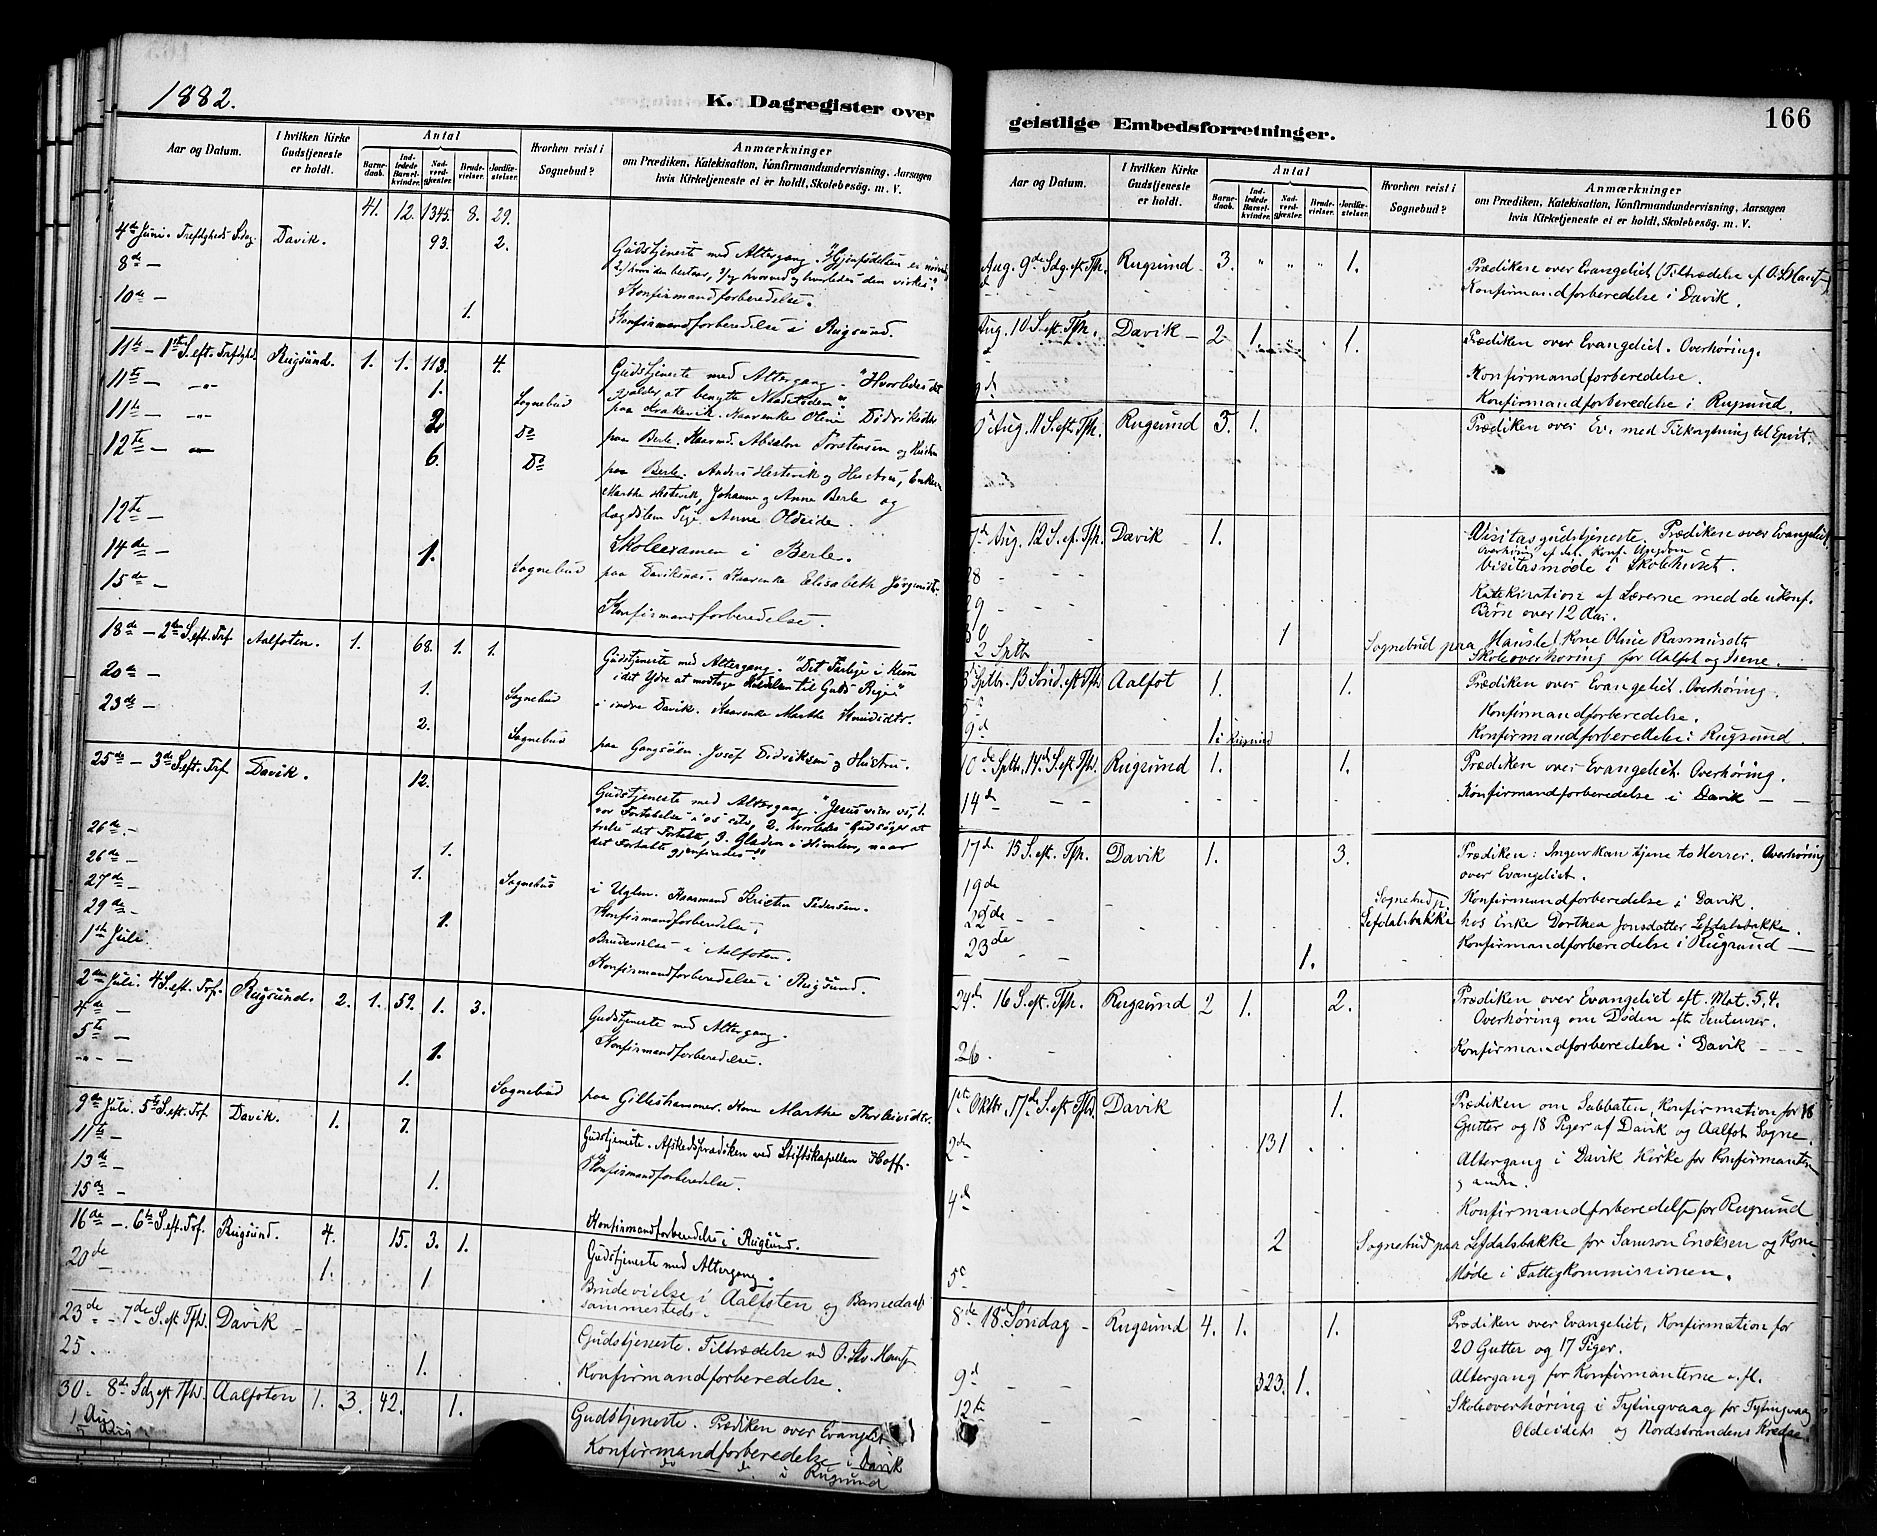 1882.
K. Dagregister over
Aar og Datum.
I hvilken Kirke Gudstjeneste er holdt.
Antal
Barnedaab.
Indledede Barselkvinder.
Nadverdgjester.
Brudevielser.
Jordfæstelser.
Hvorhen reist i Sognebud?
Anmærkninger
om Prædiken, Katekisation, Konfirmandundervisning, Aarsagen
hvis Kirketjeneste ei er holdt, Skolebesög. m. V.
41. 12. 1345. 8. 29.
4de Juni. Trefoldgheds Sdag. Davik. 93. 2. Gudstjeneste med Altergang.
8de —
Konfirmandforberedelse.
10de — 1. Konfirmandforberedelse i Rugsund.
11te — 1ste S. eft. Trefoldghed. Rugsund. 1. 1. 113. 4. Gudstjeneste med Altergang. "Hvorledes det
gjælder, at benytte Naadetiden"
11te — 1. Sognebud paa Krakevik. Oline Didriksdtr
11te — 2. Do paa Berle. Absalon Torstensen og Hustru
12te — 6. Do paa Berle. Anders Hestevik og Hustru, Enken
Marthe Hestevik, Johanne og Anne Berle og
Pige Anne Oldeide.
12te — Skoleexamen i Berle.
14de — 1. Sognebud paa Daviknes. Elisabeth Jørgensdtr.
15de — Konfirmandforberedelse.
18de — 2den S. eft. Tref. Aalfoten. 1. 68. 1. 1. Gudstjeneste med Altergang. "Det Farlige i kun
i det Ydre at modtage til Guds Rige"
20de — 1. Sognebud i indre Davik. Marthe Knudsdtr.
23de — 2. Sognebud paa Gangsøen. Josef Didriksen og Hustru.
25de — 3die S. eft. Tref. Davik. 12. Gudstjeneste med Altergang. "Jesus viser os, 1.
vor Fortabelse i os selv, 2. hvorledes Gud søger at
frelse det Fortabte, 3. Glæden i Himlen, naar
det Fortabte gjenfindes"
26de — 1.
26de — 1. Sognebud i Uglen. Kristen Pedersen.
27de — Konfirmandforberedelse.
29de — 1. Brudevielse i Aalfoten.
1ste Juli. Konfirmandforberedelse i Rugsund.
2den Juli. 4 S. eft. Tref. Rugsund. 2. 1. 59. 1. 3. Gudstjeneste med Altergang.
4de — Konfirmandforberedelse.
5te — 1.
-"- — 1. Sognebud paa Gilleshammer. Kone Marthe Thorleivsdtr.
9de Juli. 5te S. eft. Tref. Davik. 1. 7. Gudstjeneste. Afskedsprædiken ved Stiftskapellan Hoff.
11te — Konfirmandforberedelse.
13de — 1.
15de — Konfirmandforberedelse i Rugsund.
16de — 6te S. eft. Tref. Rugsund. 4. 15. 3. 1. Gudstjeneste med Altergang.
20de — 1. 1 Brudevielse i Aalfoten og Barnedaab
sammesteds.
23de — 7de S. eft. Tfh. Davik — Gudstjeneste. Tiltrædelse
25. 1. Konfirmandforberedelse.
30. 8de Sdg eft Tfh. Aalfoten 1. 3. 42. 1. Gudstjeneste. Prædiken over Evangeliet
1 Aug Konfirmandforberedelse i Davik
do — di i Rugsund
geistlige Embedsforretninger.
166
Aar og Datum.
I hvilken Kirke Gudstjeneste er holdt.
Antal
Barnedaab.
Indledede Barselkvinder.
Nadverdgjester.
Brudevielser.
Jordfæstelser.
Hvorhen reist i Sognebud?
Anmærkninger
om Prædiken, Katekisation, Konfirmandundervisning, Aarsagen
hvis Kirketjeneste ei er holdt, Skolebesög. m. V.
Aug. 9de Sdg. eft. Tfh. Rugsund 3. " " " 1. Prædiken over Evangeliet
Konfirmandforberedelse i Davik.
Aug. 10 S. eft. Tfh. Davik — 2 1. 1. Prædiken over Evangeliet. Overhøring.
Konfirmandforberedelse.
9de Konfirmandforberedelse i Rugsund.
Aug. 11 S. eft. Tfh. Rugsund 3. 1. Prædiken over Ev. med Tilknytning til Epist.
Aug. 12 S. ef. Tfh. Davik 1. Visitasgudstjeneste. Prædiken over Evangeliet,
Overhøring af den konf. Ungdom
Visitasmøde i Skolehuset.
28
29 Katekisation af Lærerne med de ukonf.
Børn over 12 Aar.
30 1 Sognebud paa Hauste Kone Oline Rasmusdtr
2 Sptb Skoleoverhøring for Aalfot og Isene.
Sptbr. 13 Sønd. eft Tfh Aalfot 1. 1. Prædiken over Evangeliet. Overhøring.
5te Konfirmandforberedelse.
9de 1 i Rugsund Konfirmandforberedelse i Rugsund.
10de Sptbr. 14de S. eft Tfh. Rugsund 1. 1. Prædiken over Evangeliet. Overhøring.
14de — Konfirmandforberedelse i Davik — —
17de 15 S. eft. Tfh. Davik 1. 3. Prædiken: Ingen kan tjene to Herrer. Overhøring
over Evangeliet.
19de Konfirmandforberedelse i Davik.
22de — Sognebud p. Lefdalsbakke hos Enke Dorthea Jonsdatter Lefdalsbakke.
23de — 1. Konfirmandforberedelse i Rugsund —
24de 16 S. eft. Tfh. Rugsund 2 1. 2. Prædiken over Evangeliet eft. Mat. 5,4.
Overhøring om Døden efter Sentenser.
26. Konfirmandforberedelse i Davik — - -
1ste Oktbr. 17de S. eft Tfh. Davik 1. Prædiken om Sabbaten, Konfirmation for 18
Gutter og 18 Piger af Davik og Aalfot Sogne.
2de 131 Altergang i Davik Kirke for Konfirmanter
og andre.
4de Konfirmandforberedelse for Rugsund
2 Sognebud paa Lefdalsbakke for Samson Enoksen og Kone
5te Møde i Fattigkommissionen.
8de 18de Søndag — Rugsund 4. 1. 1. Prædiken over Evangeliet, Konfirmation for
20 Gutter og 17 Piger.
9de — 323. 1. Altergang for Konfirmanterne o. fl.
12te Skoleoverhøring i Tytingvaag for Tytingvaag
Oldeidets og Nordstrandens Kredse.